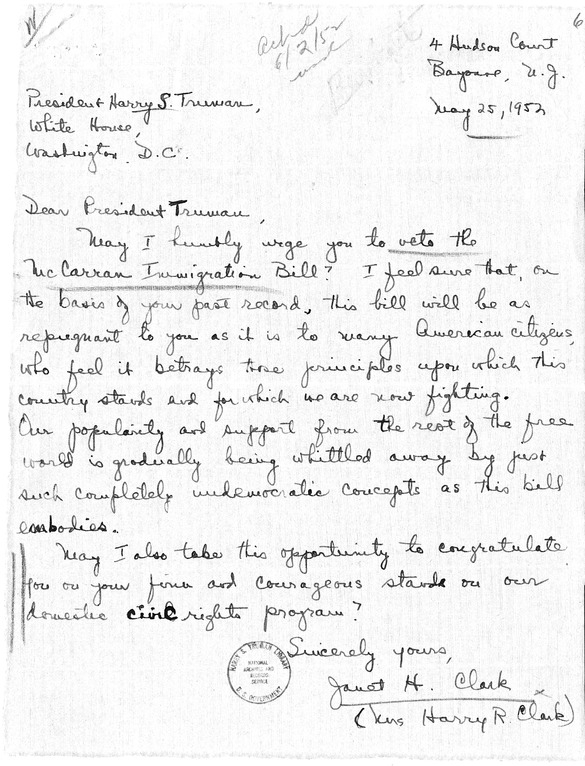 W
6
ack'd
6/2/52
4 Hudson Court
Bayonne, N.J.
May 25, 1952
President Harry S. Truman,
White House,
Washington D.C.
Dear President Truman,
May I humbly urge you to veto the
McCarran Immigration Bill? I feel sure that, on
the basis of your past record, this bill will be as
repugnant to you as it is to many American citizens,
who feel it betrays those principles upon which this
country stands and for which we are now fighting.
Our popularity and support from the rest of the free
world is gradually being whittled away by just
such completely undemocratic concepts as this bill
embodies.
May I also take this opportunity to congratulate
you on your firm and courageous stands on our
domestic civil rights program?
Sincerely yours,
Janet H. Clark
(Mrs Harry R. Clark)
HARRY S. TRUMAN LIBRARY
NATIONAL
ARCHIVES AND
RECORDS
SERVICE
U.S. GOVERNMENT